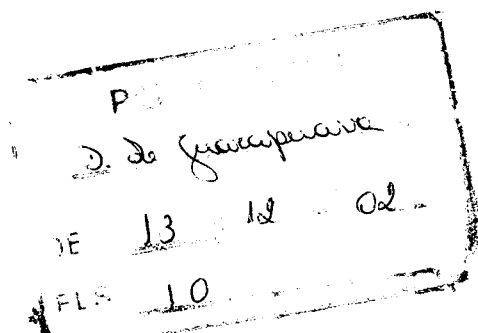 P
D. de Guarapuava
DE 13 12 02
FLS 10